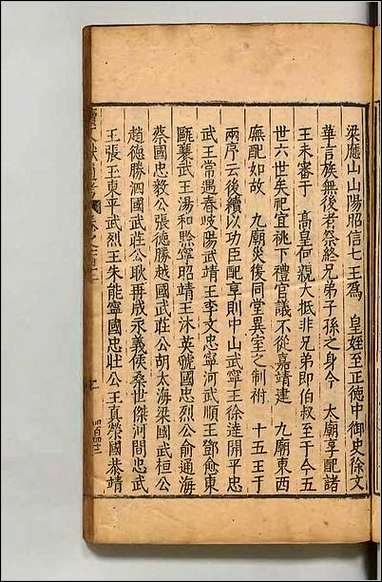 梁鴈山山陽昭信七王為　皇姪至正德中御史徐文
華言族無後者祭終兄弟子孫之身今　太廟享配諸
王未審于　高皇何親大抵非兄弟即伯叔至于今五
世六世矣祀宜祧下禮官議不從嘉靖建　九廟東西
廡配如故　九廟災後同堂異室之制祔　十五王于
兩序云後續以功臣配享則中山武寧王徐達開平忠
武王常遇春岐陽武靖王李文忠寧河武順王鄧愈東
甌襄武王湯和黔寧昭靖王沐英虢國忠烈公俞通海
蔡國忠毅公張德勝越國武莊公胡大海梁國武桓公
趙德勝泗國武莊公耿再成永義侯桑世傑河間忠武
王張玉東平武烈王朱能寧國忠壯公王真榮國恭靖